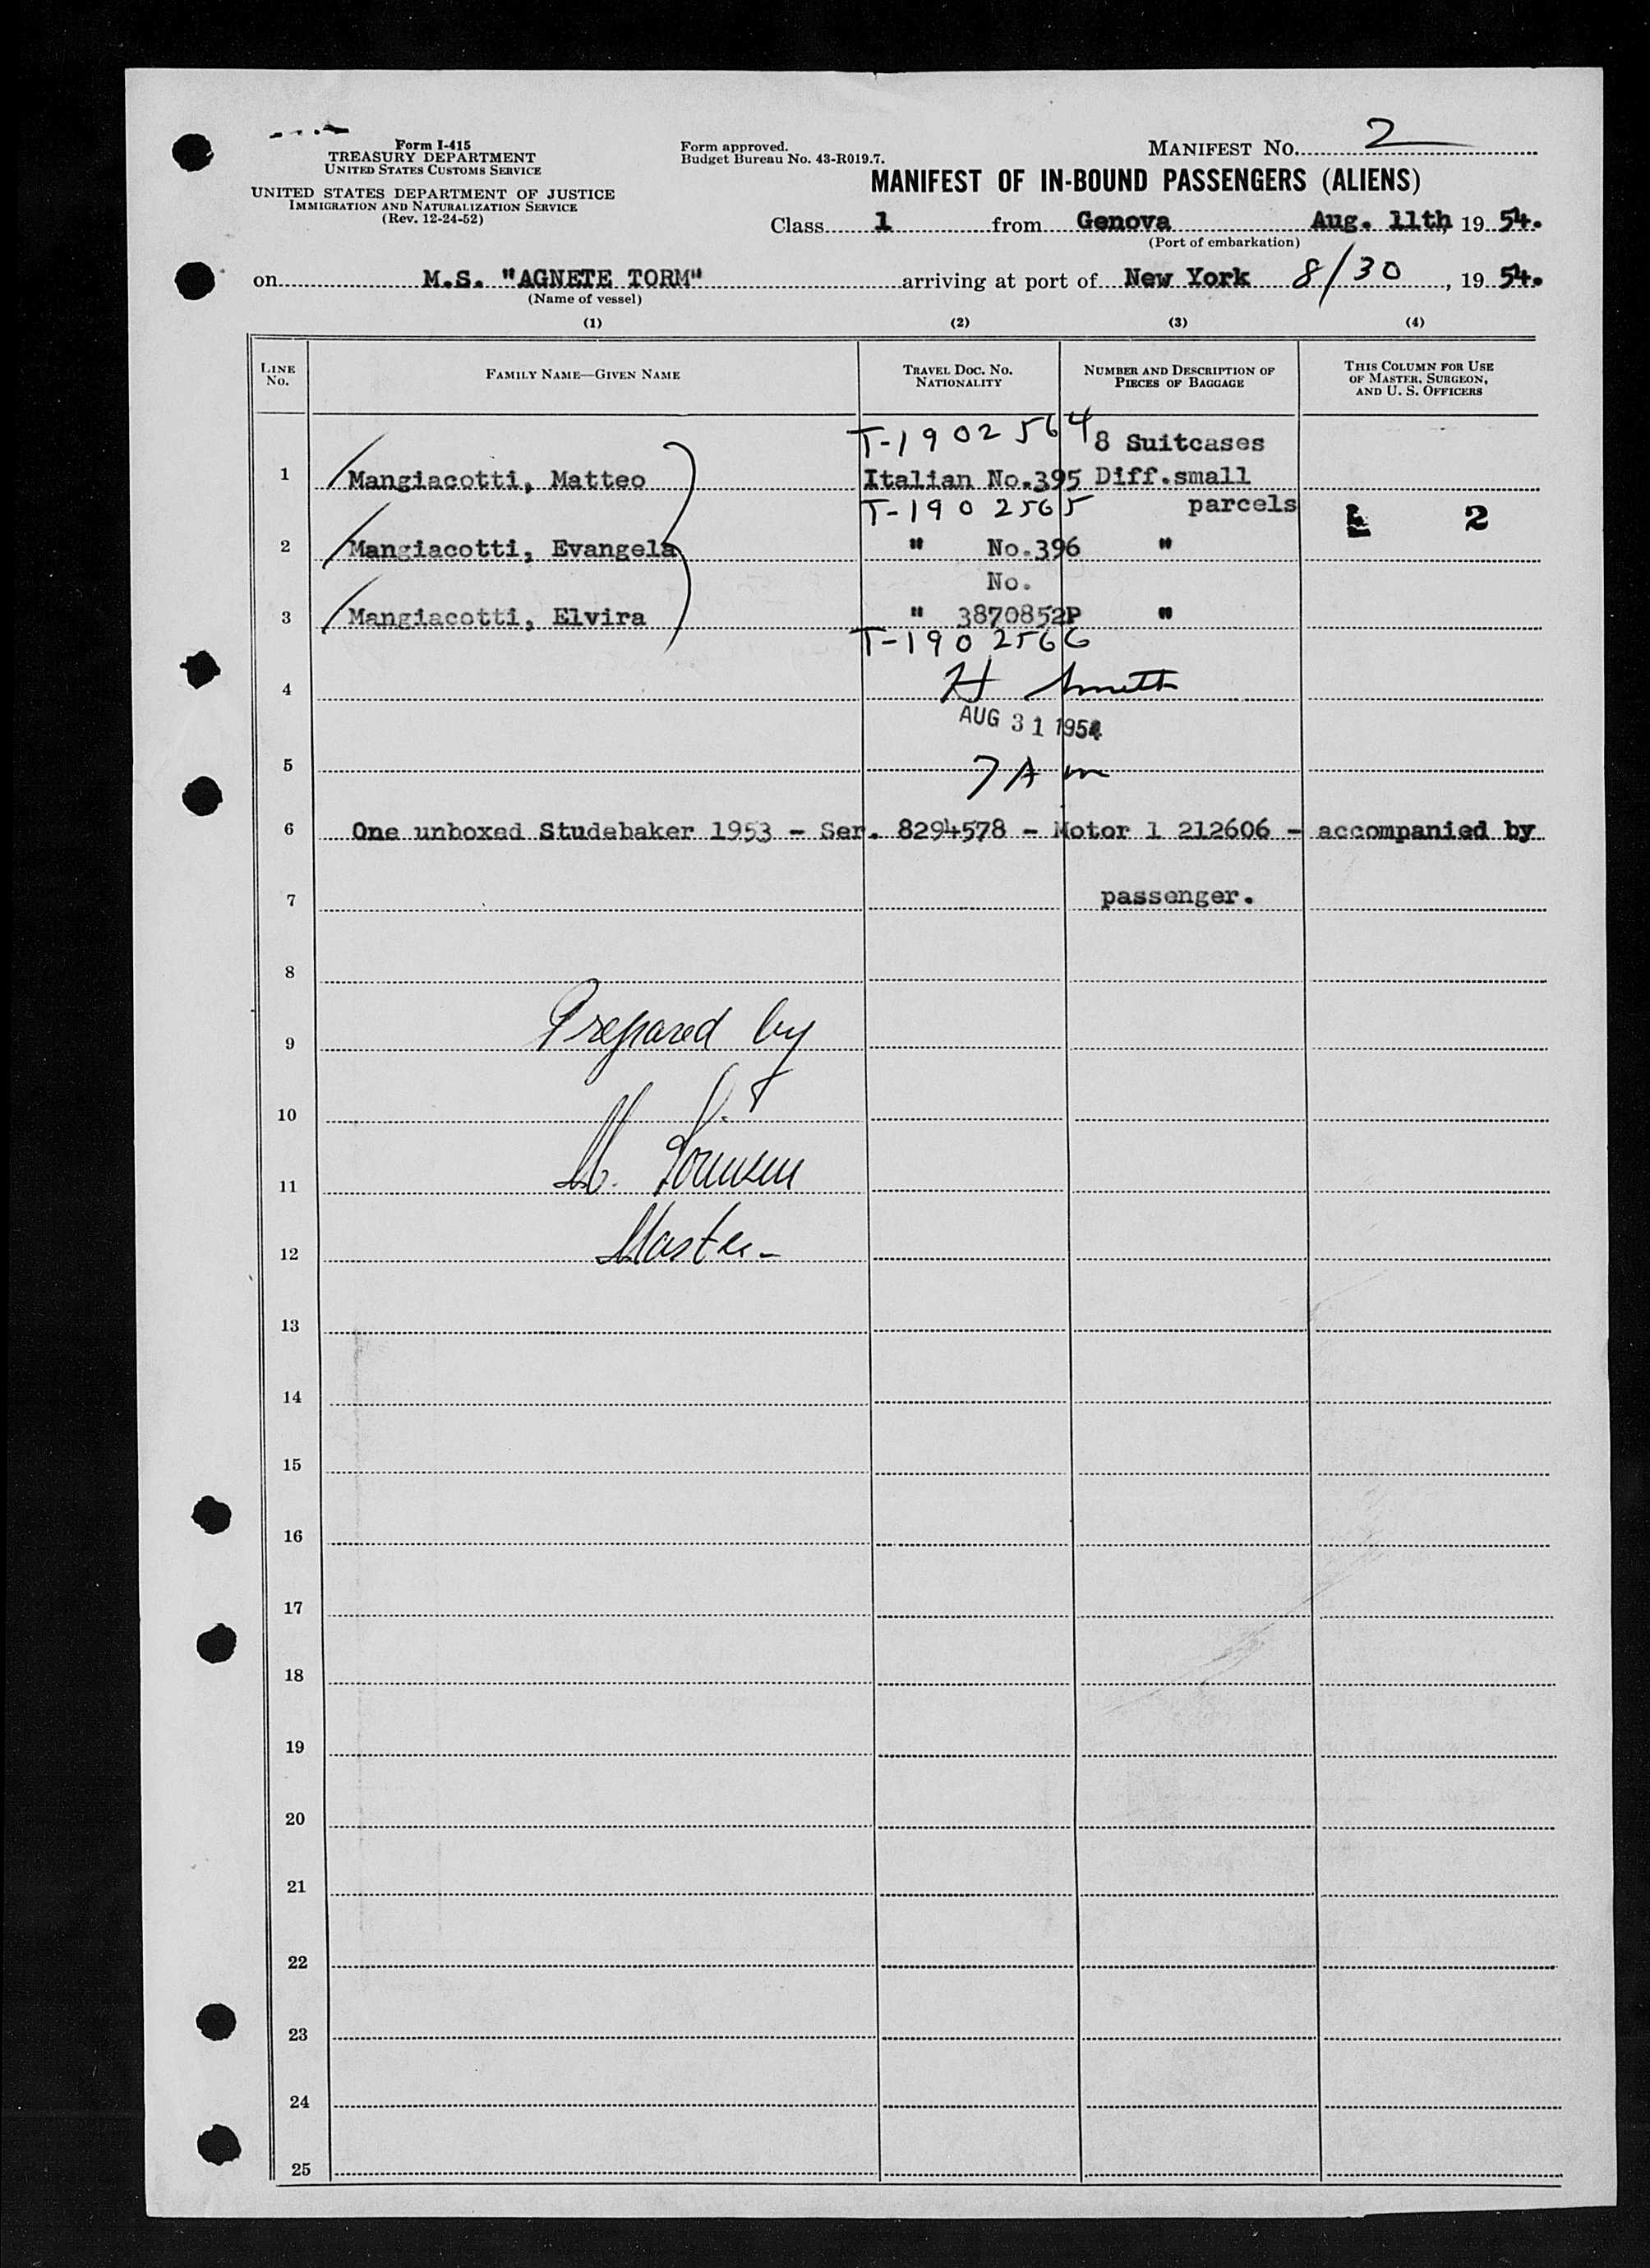 Form I-415
TREASURY DEPARTMENT
UNITED STATES CUSTOMS SERVICE
UNITED STATES DEPARTMENT OF JUSTICE
IMMIGRATION AND NATURALIZATION SERVICE
(Rev. 12-24-52)
Form approved.
Budget Bureau No. 43-R019.7.
MANIFEST NO. 2
MANIFEST OF IN-BOUND PASSENGERS (ALIENS)
Class 1 from Genova Aug. 11th, 19 54.
(Port of embarkation)
on M.S. "AGNETE TORM" arriving at port of New York 8/30, 19 54.
(Name of vessel)
(1) (2) (3) (4)
LINE No. FAMILY NAME—GIVEN NAME TRAVEL DOC. NO. NATIONALITY NUMBER AND DESCRIPTION OF PIECES OF BAGGAGE THIS COLUMN FOR USE OF MASTER, SURGEON, AND U. S. OFFICERS
T-1902564 8 Suitcases
1 Mangiacotti, Matteo Italian No.395 Diff.small
T-1902565 parcels
2
2 Mangiacotti, Evangela " No.396 "
No.
3 Mangiacotti, Elvira " 3870852P "
T-1902566
4 H Smith
AUG 31 1954
5 7 AM
6 One unboxed Studebaker 1953 - Ser. 8294578 - Motor 1 212606 - accompanied by
7 passenger.
8
9 Prepared by
10
11
12 Master
13
14
15
16
17
18
19
20
21
22
23
24
25